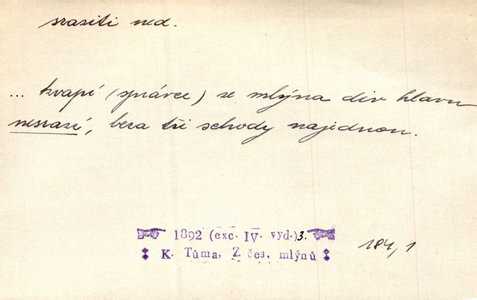 sraziti ned.
... kvapí (správce) ze mlýna div hlavu
nesrazí, bera tři schody najednou.
1892 (exc. IV. vyd.) 3.
K. Tůma, Z čes. mlýnů
184, 1